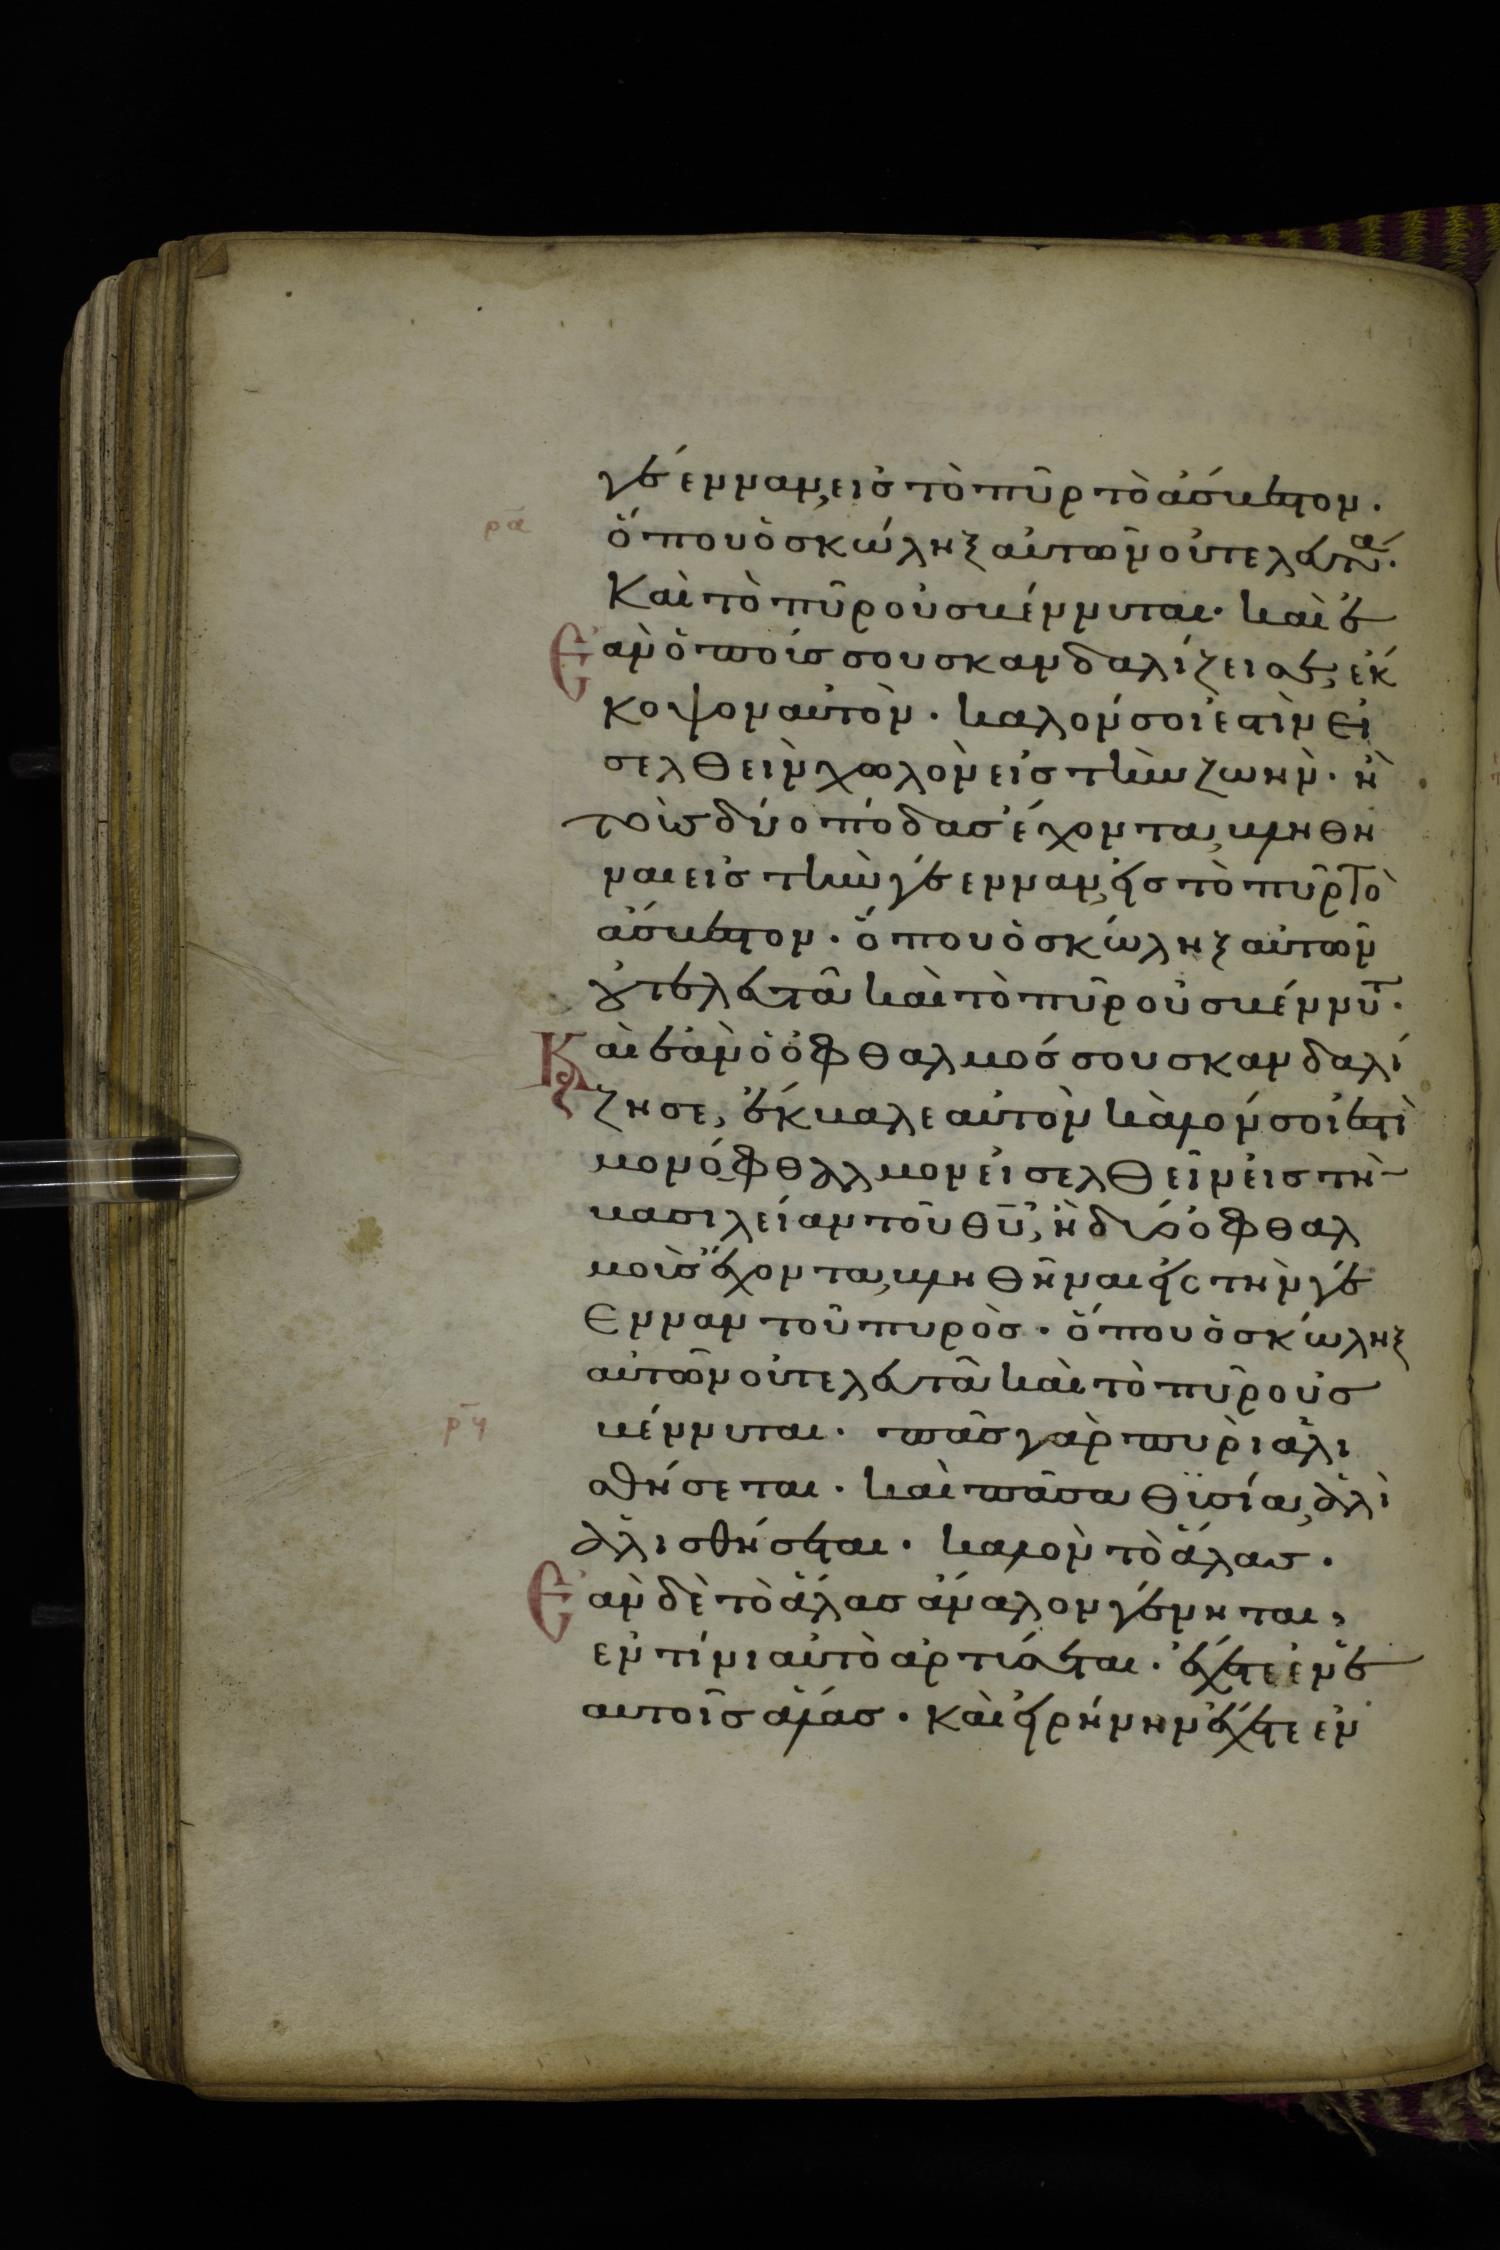 γέενναν, εἰς τὸ πῦρ τὸ ἄσβεστον.
ρα ὅπου ὁ σκώληξ αὐτῶν οὐ τελευτᾶ.
Καὶ τὸ πῦρ οὐ σβέννυται. καὶ ἐ
Ἐὰν ὁ ποῦς σου σκανδαλίζει σε, ἐκ
κοψον αὐτὸν. καλόν σοι ἐστὶν εἰ
σελθεὶν χωλὸν εἰς τὴν ζωὴν. ἢ
τοὺς δύο πόδας ἔχοντα, βληθη
ναι εἰς τὴν γέενναν, εἰς τὸ πῦρ τὸ
ἄσβεστον. ὅπου ὁ σκώληξ αὐτῶν
οὐ τελευτᾶ καὶ τὸ πῦρ οὐ σβέννυτ.
Καὶ ἐὰν ὁ ὀφθαλμός σου σκανδαλί
ζη σε, ἔκβαλε αὐτὸν καλόν σοι ἐστὶ
μονόφθαλμον εἰσελθεῖν εἰς τὴν
βασιλείαν τοῦ θῦ, ἢ δύο ὀφθαλ
μοὺς ἔχοντα, βληθῆναι εἰς τὴν γέ
ενναν τοῦ πυρὸς. ὅπου ὁ σκώληξ
αὐτῶν οὐ τελευτᾶ καὶ τὸ πῦρ οὐ σ
βέννυται. πᾶς γὰρ πυρὶ ἁλι
σθήσεται. καὶ πᾶσα θϋσία, ἁλὶ
ἁλισθήσεται. καλὸν τὸ ἅλας.
Ἐὰν δὲ τὸ ἅλας ἄναλον γένηται,
ἐν τίνι αὐτὸ ἀρτύσεται. ἔχετε ἐν ἑ
αυτοῖς ἅλας. καὶ εἰρήνην ἔχετε ἐν